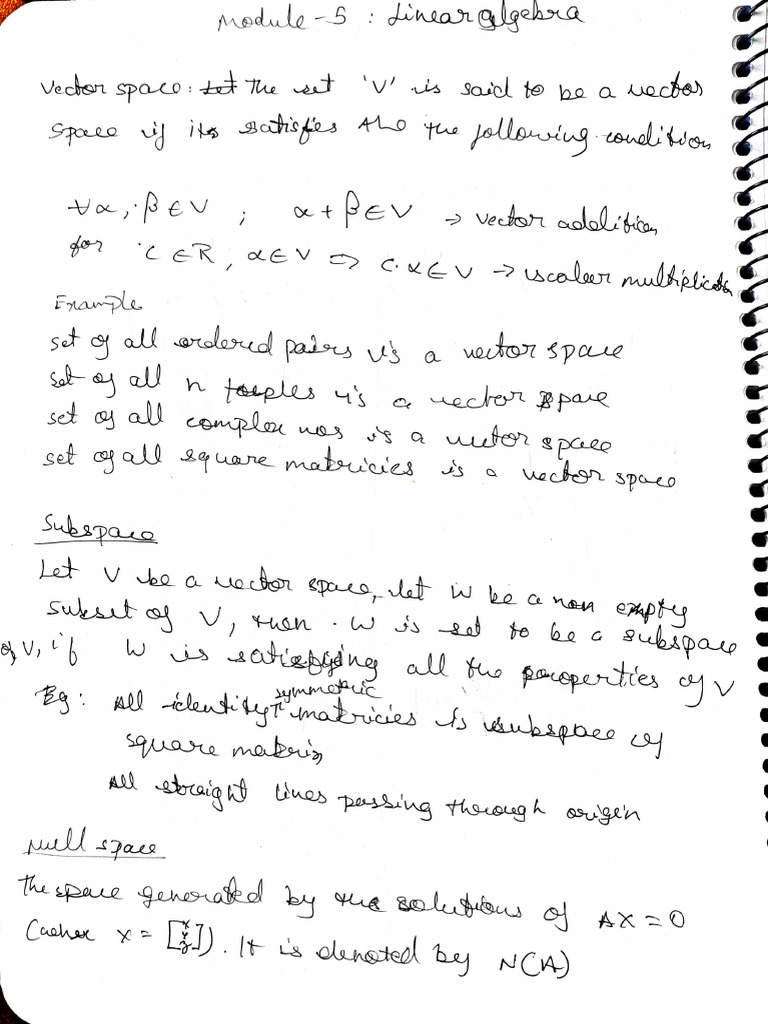 Module - 5 : Linear algebra
Vector space: Let The set 'V' is said to be a vector
space if its satisfies the the following condition
∀α, β ∈ V ; α + β ∈ V → vector addition
for 'c ∈ R, α ∈ V => c·α ∈ V → scalar multiplication
Example
set of all ordered pairs is a vector space
set of all n touples is a vector space
set of all complex nos is a vector space
set of all square matricies is a vector space
Subspace
Let V be a vector space, let W be a non empty
subset of V, then W is set to be a subspace
of V, if W is satisfying all the properties of V
Eg: All identity symmetric matricies is subspace of
square matrix
All straight lines passing through origin
Null space
The space generated by the solutions of AX = 0
x = [x y z]). It is denoted by N(A)